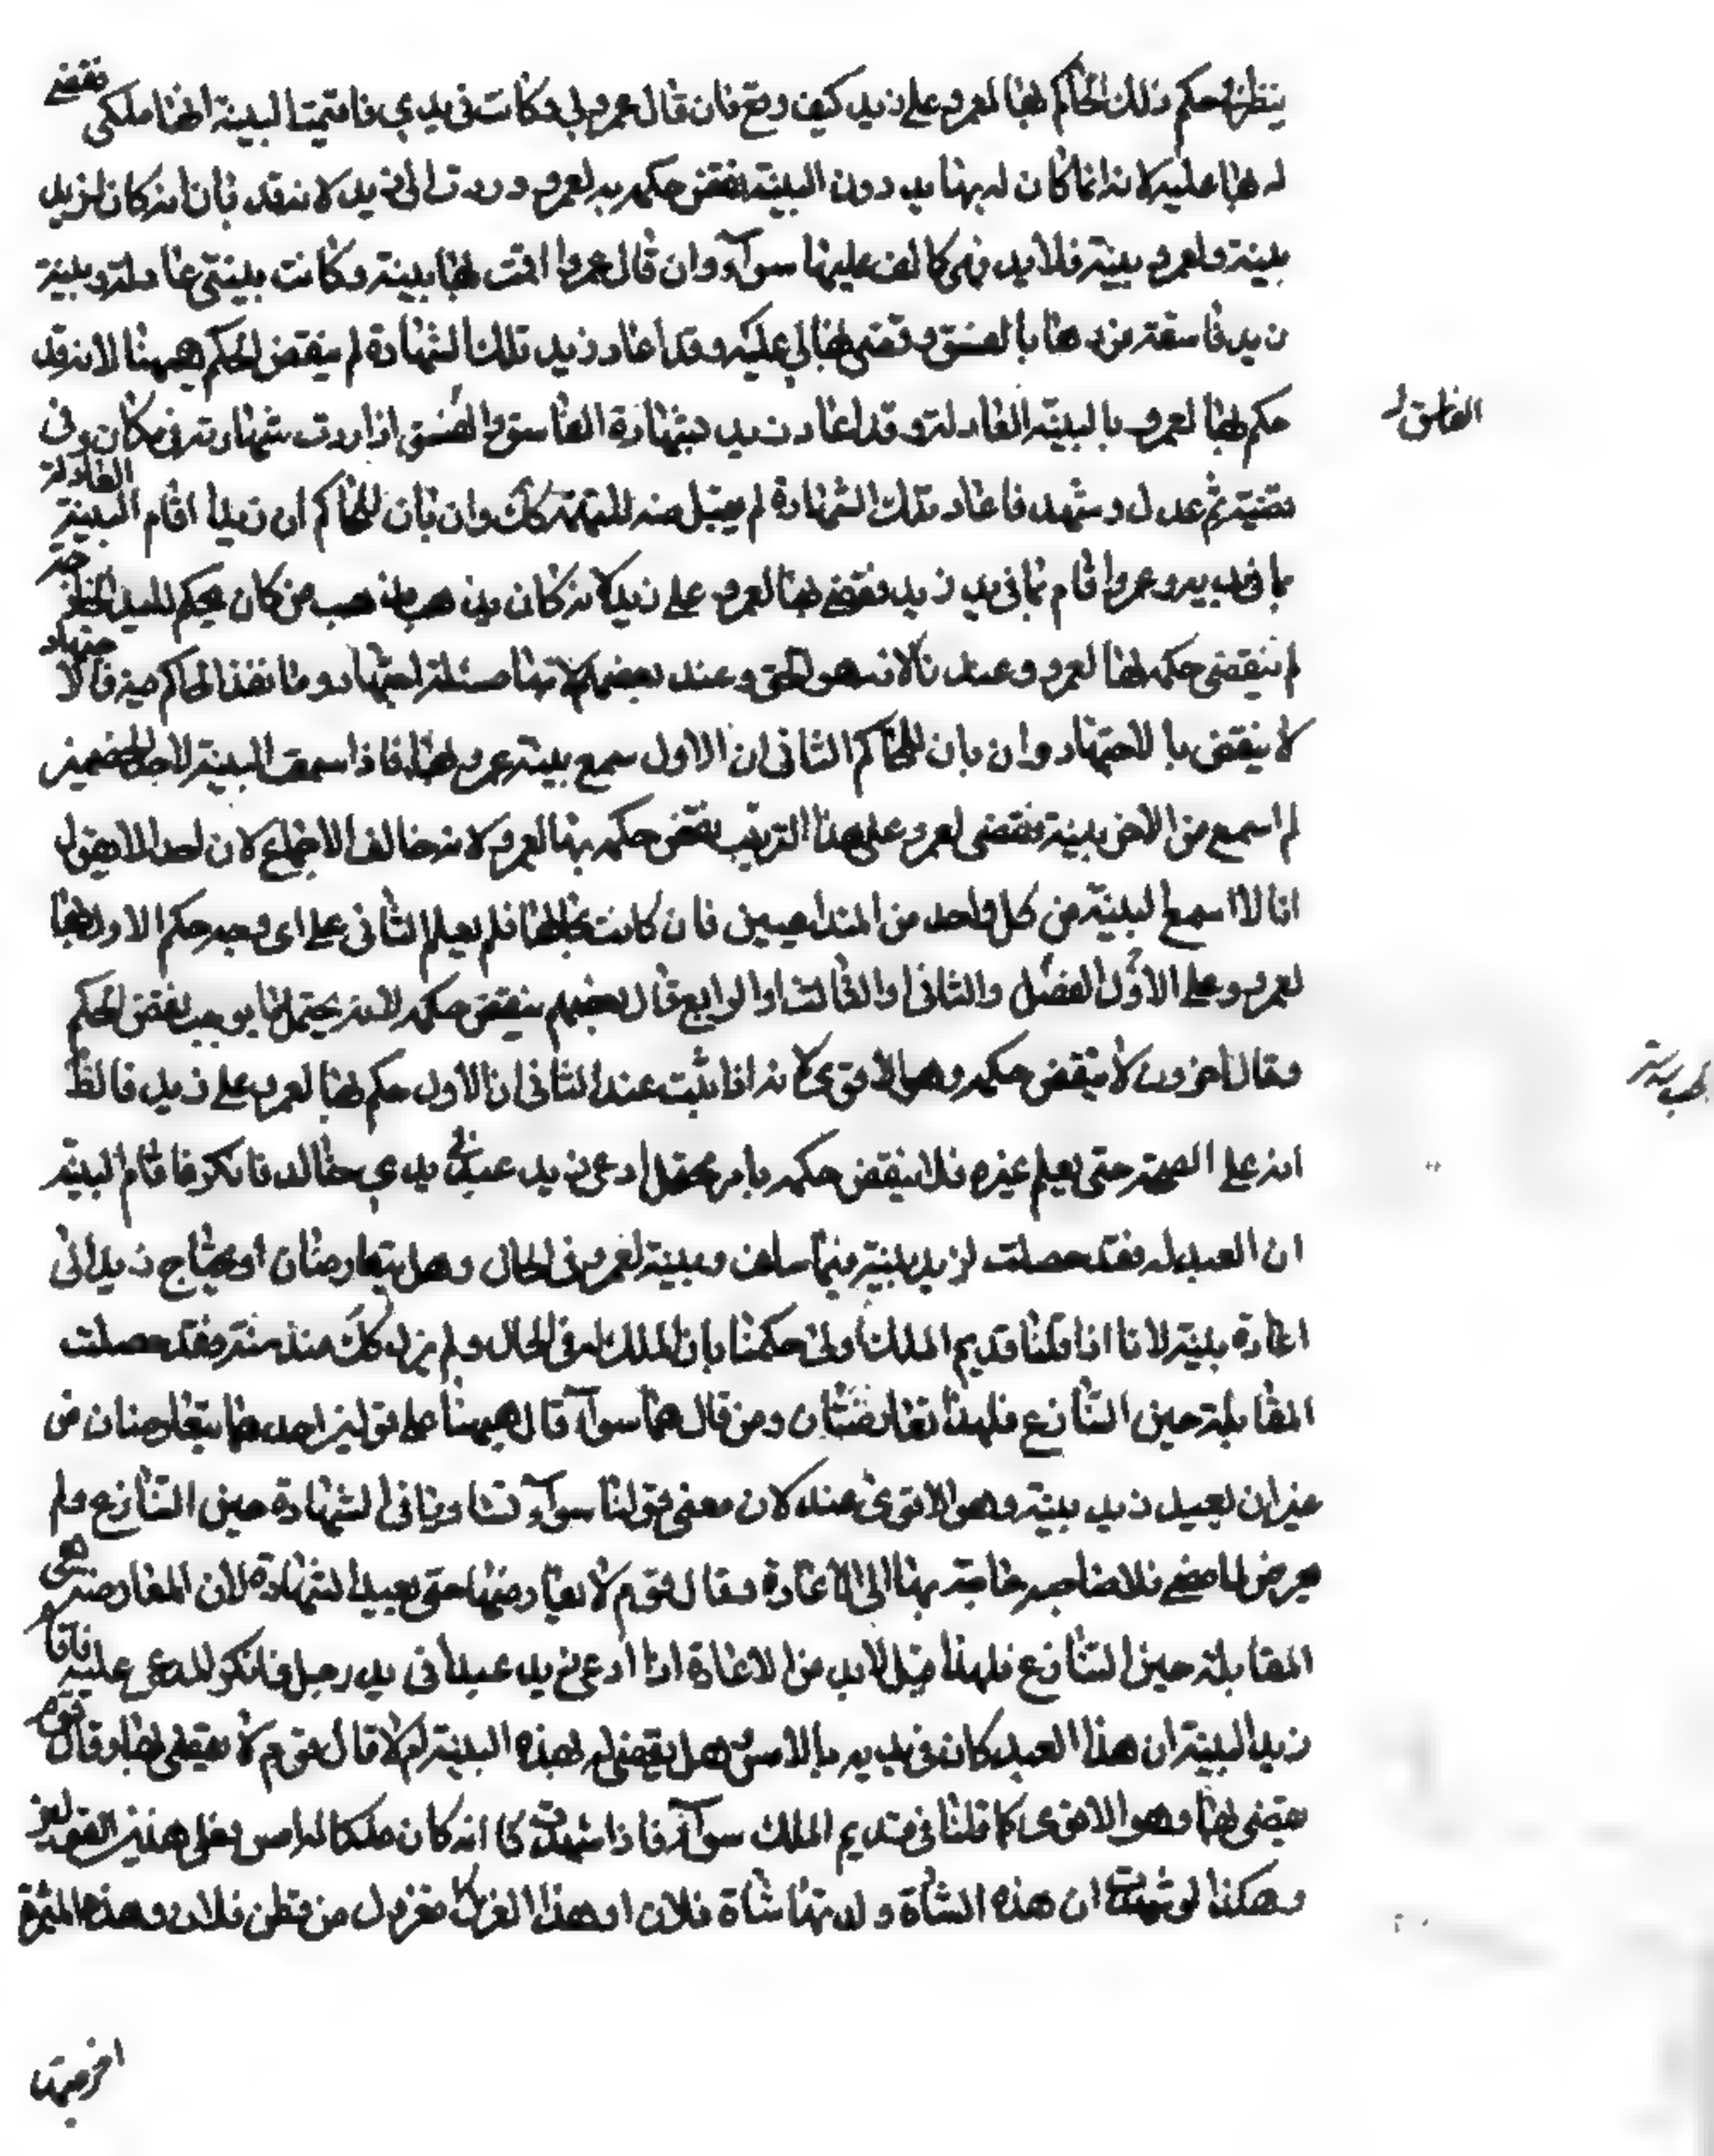 ينظر في حكم ذلك الحاكم بها لعمرو على زيد كيف وقع فان قال عمرو لي وكانت في يدي فاقمت البينة انها ملكي فقضى
له بها عليه لانه انما كان له بها يد دون البينة نقض حكمه به لعمرو وردت الى زيد لانه قد بان انه كان لزيد
بينة ولعمرو بينة فلا يد فهي كالف عليها سواء وان قال عمرو اقمت بها بينة وكانت بينتي عادلة وبينة
زيد فاسقة فردها بالفسق وقضى بها لي عليه وقد اعاد زيد تلك الشهادة لم ينقض الحكم ههنا لانه قد
حكم بها لعمرو بالبينة العادلة وقد اعاد زيد شهادة الفاسق والفسق اذا ردت شهادته في مكان وفي
الفاسق
قضية ثم عدل وشهد فاعاد تلك الشهادة لم يقبل منه للتهمة كك وان بان للحاكم ان زيدا اقام البينة العادلة
بما في يديه وعمروا قام بما في يد زيد فقضى بها لعمرو على زيد لانه كان يذهب مذهب من كان يحكم لليد الخارجة
لم ينقض حكمه بها لعمرو وعندنا لانه هو الحق وعند بعضهم لانها مسئلة اجتهاد وما نفذ الحاكم فيه فالاجتهاد
لا ينقض بالاجتهاد وان بان للحاكم الثاني ان الاول سمع بينة عمرو فقال اذا سمعت البينة لاحد الخصمين
لم اسمع من الاخر بينة فقضى لعمرو على هذا الترتيب نقض حكمه بها لعمرو لانه خالف الاجماع لان احدا لا يقول
انا لا اسمع البينة من كل واحد من المتداعيين فان كانت بحالها فلم يعلم الثاني على اى وجه حكم الاول بها
لعمرو وعلى الاول الفصل والثاني او الثالث او الرابع قال بعضهم ينقض حكمه لانه يحتمل ما يوجب نقض الحكم
وقال اخرون لا ينقض حكمه وهو الاقوى لانه اذا ثبت عند الثاني ان الاول حكم بها لعمرو على زيد فالظ
انه على الصحة حتى يعلم غيره فلا ينقض حكمه بامر محتمل ادعى زيد عبدا في يدي خالد فانكر فاقام البينة
ان العبد له فقد حصلت لزيد بينة فيما سلف وبينة لعمرو في الحال وهل يتعارضان او يحتاج زيد الى
اعادة بينة لانا اذا قلنا قديم الملك اولى حكمنا بان الملك له في الحال ولم يزل كك منذ سنة فقد حصلت
المقابلة حين التنازع فلهذا تعارضتا ومن قال هما سواء قال ههنا على قولين احدهما يتعارضان من
غير ان يعيد زيد بينة وهو الاقوى عنده لان معنى قولنا سواء تساويا في الشهادة حين التنازع ولم
يعرض لما مضى فلا حاجة بها الى الاعادة وقال قوم لا يعارضها حتى يعيد الشهادة لان المعارضة هي
المقابلة حين التنازع فلهذا قيل لا بد من الاعادة اذا ادعى زيد عبدا في يد رجل فانكر المدعى عليه فاقام
زيد البينة ان هذا العبد كان في يديه بالامس هل يقضى له بهذه البينة ام لا قال قوم لا يقضى بها وقال قوم
يقضى بها وهو الاقوى كما قلنا في قديم الملك سواء فاذا شهدت كا انه كان ملكا له امس فعلى هذين القولين
وهكذا لو شهدت ان هذه الشاة ولدتها شاة فلان او هذا الغزل مغزول من قطن فلان وهذه الثمرة
اخرجتها